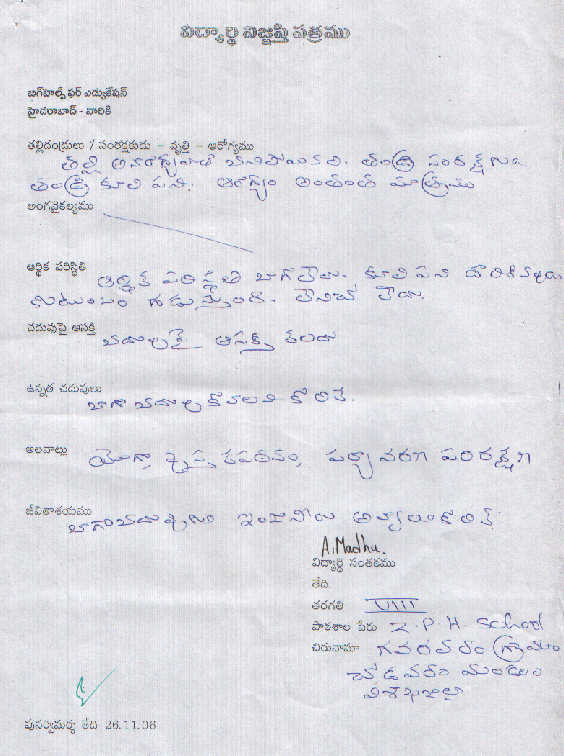 విద్యార్థి విజ్ఞప్తి పత్రము
బిగ్‌హెల్ప్ ఫర్ ఎడ్యుకేషన్
హైదరాబాద్ - వారికి
తల్లిదండ్రులు / సంరక్షకుడు - వృత్తి - ఆరోగ్యము
తల్లి అనారోగ్యంతో చనిపోయినది. తండ్రి సంరక్షకుడు
తండ్రి కూలి పని. ఆరోగ్యం అంతంత మాత్రము
అంగవైకల్యము
ఆర్థిక పరిస్థితి ఆర్థిక పరిస్థితి బాగోలేదు. కూలి పని దొరికినప్పుడు
కుటుంబం గడుస్తోంది. లేనిచో లేదు.
చదువుపై ఆసక్తి చదువుపై ఆసక్తి కలదు
ఉన్నత చదువులు
బాగా చదువుకోవాలని కోరిక.
అలవాట్లు యోగా, పుస్తకపఠనం, పర్యావరణ పరిరక్షణ
జీవితాశయము
బాగా చదువుకుని ఇంజనీరు అవ్వాలని కోరిక
A. Madhu.
విద్యార్థి సంతకము
తేది.
తరగతి VIII
పాఠశాల పేరు Z. P. H. School
చిరునామా గవరవరం గ్రామం
చోడవరం మండలం
విశాఖజిల్లా
పునర్విమర్శ తేది 26.11.08